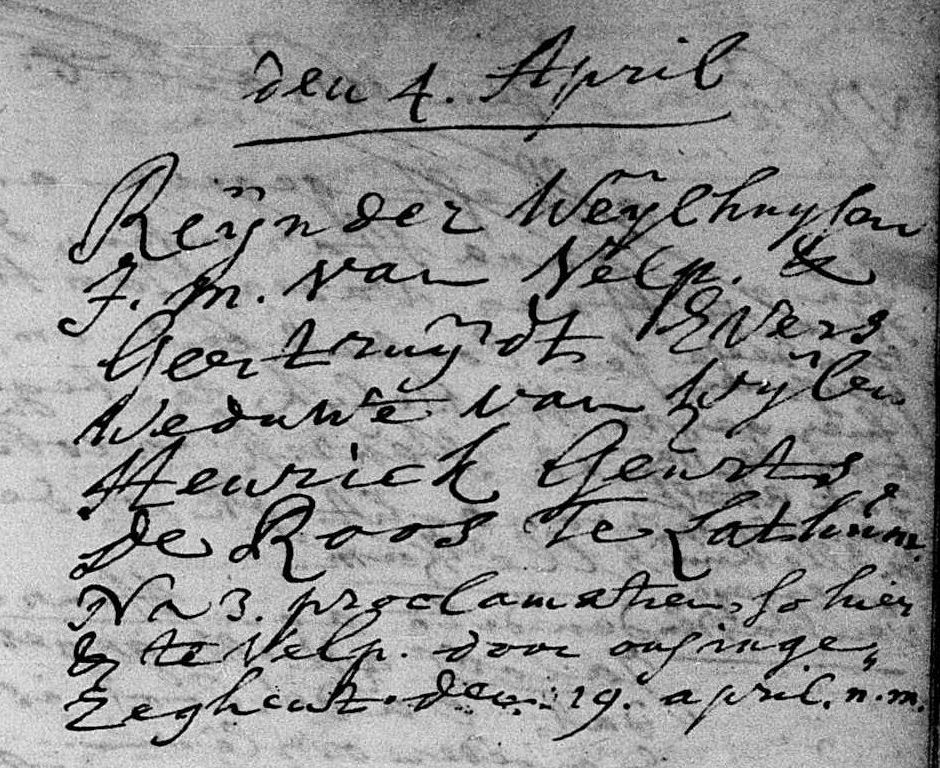 den 4. April
Reÿnder Weÿlhuysen
J. m. van Velp. &
Geertruÿdt Evers
Weduwe van Wÿlen
Henrick Geurts
De Roos te Lathum.
Na 3. proclamatien, so hier
& te Velp. door ons inge„
Zeghent. den. 19. april. n.m.